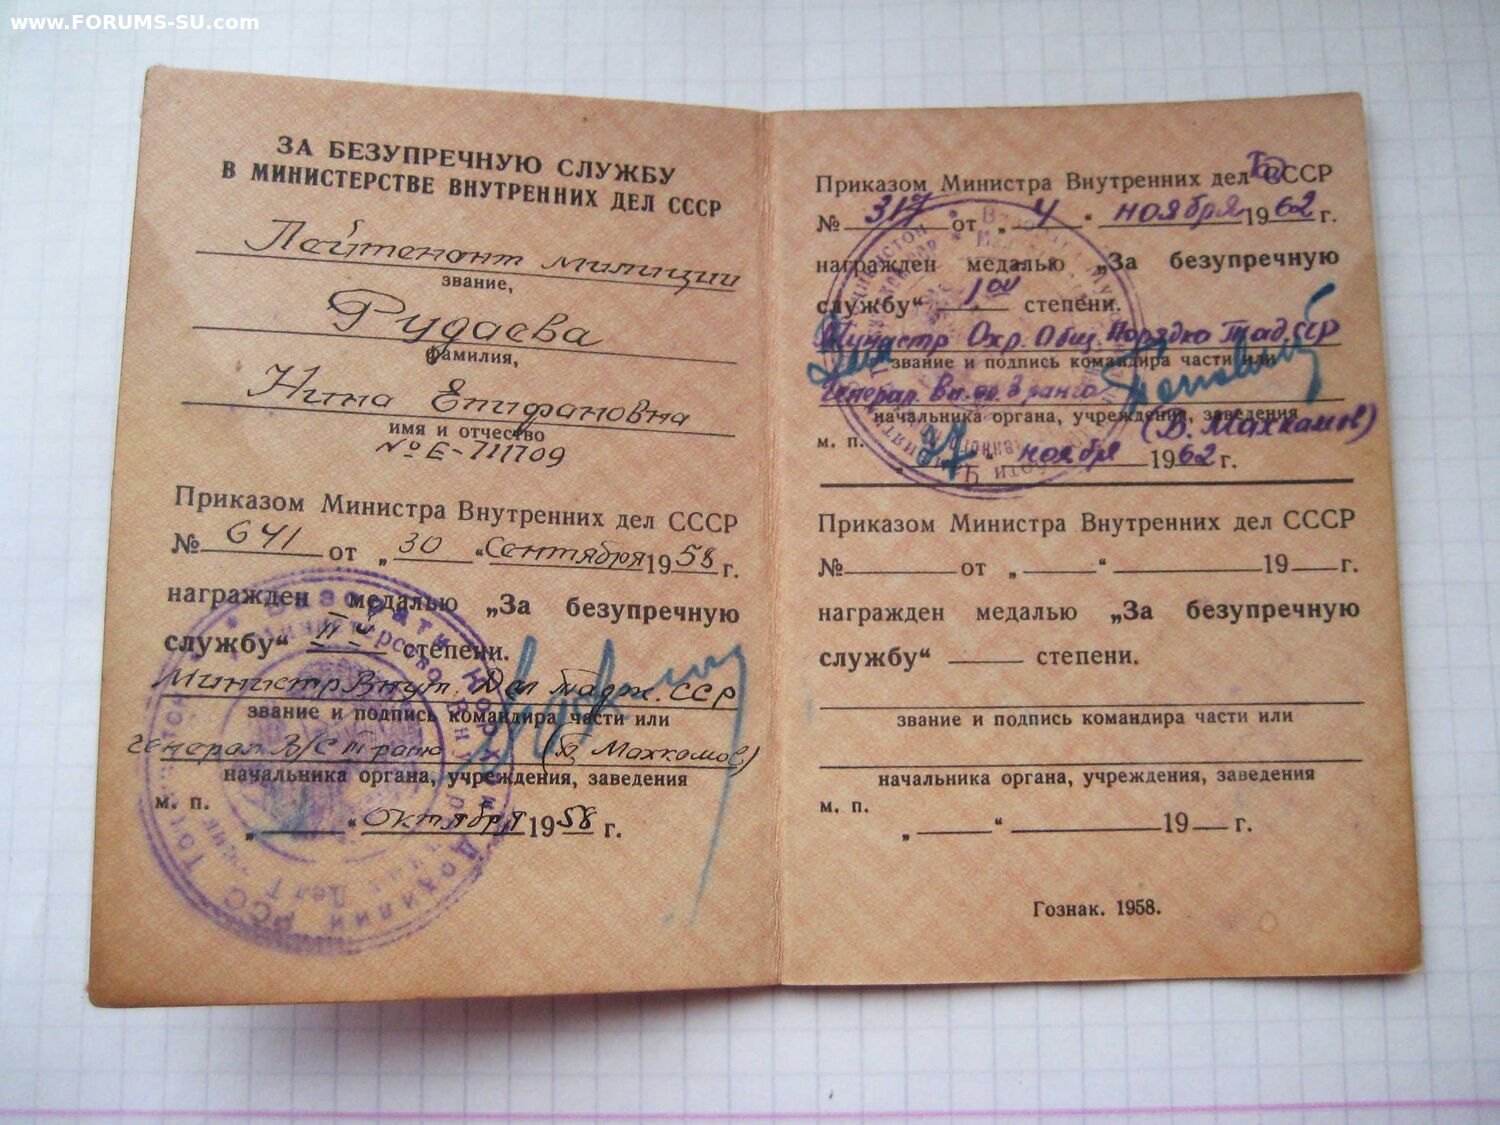 www.FORUMS-SU.com
ЗА БЕЗУПРЕЧНУЮ СЛУЖБУ
В МИНИСТЕРСТВЕ ВНУТРЕННИХ ДЕЛ СССР
Лейтенант милиции
звание,
Рудаева
фамилия,
Нина Епифановна
имя и отчество
№ Е-711709
Приказом Министра Внутренних дел СССР
№ 641 от „30“ Сентября 1958 г.
награжден медалью „За безупречную
службу“ II й степени.
Министр Внут. Дел Тадж. ССР
звание и подпись командира части или
Генерал В/С III ранга Махкамов)
начальника органа, учреждения, заведения
м. п.
„ “ Октября 1958 г.
Приказом Министра Внутренних дел СССР
№ 317 от „4“ ноября 1962 г.
награжден медалью „За безупречную
службу“ 1ой степени.
Министр Охр. Общ. Порядка Тад. ССР
звание и подпись командира части или
Генерал Вн. сл. 3 ранга
начальника органа, учреждения, заведения
(В. Махкамов)
м. п.
„27“ ноября 1962 г.
Приказом Министра Внутренних дел СССР
№ от „ “ 19 г.
награжден медалью „За безупречную
службу“ степени.
звание и подпись командира части или
начальника органа, учреждения, заведения
м. п.
„ “ 19 г.
Гознак. 1958.